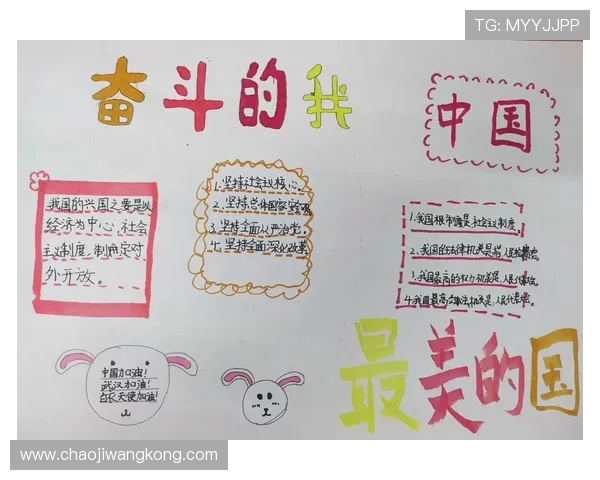 TG: MYYJJPP
奋斗的我
中国
我国的兴国之要是以
经济为中心,社会
主义制度,制商定对
外开放。
1. 坚持社会主义核心
2. 坚持总体国家安全观
3. 坚持全面从严治党
4. 坚持全面深化改革
1. 我国根本制度是社会主义制度
2. 我国的法律机关是
3. 我国最高的权力机关是,人民代表大会。
4. 我国最高立法机关是,人民代表大会。
中国加油!
武汉加油!
白衣天使加油!
最美的国
www.chaojiwangkong.com